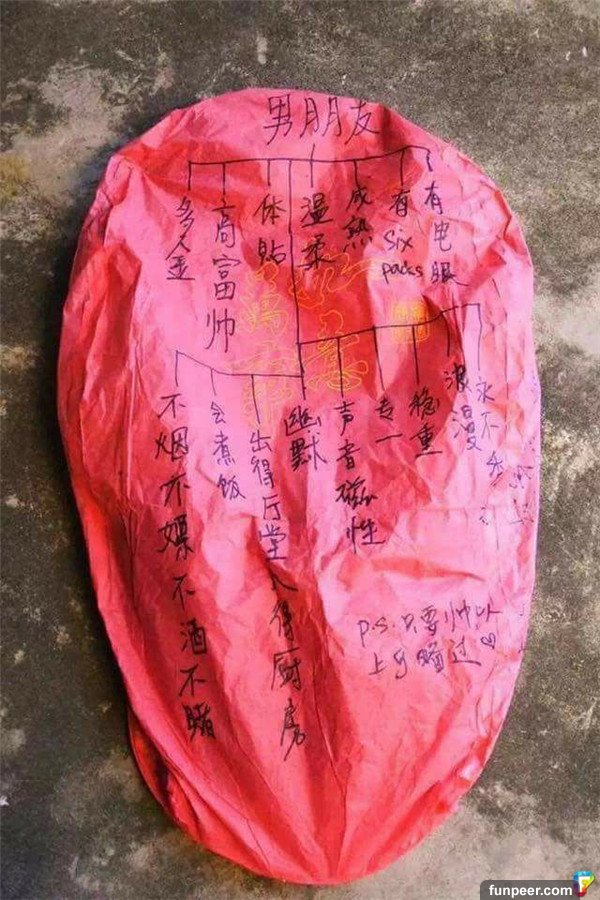 男朋友
多金
高富帅
体贴
温柔
成熟
有 six packs
有电眼
不烟不嫖不酒不赌
会煮饭
出得厅堂入得厨房
幽默
声音磁性
专一
稳重
浪漫
永不
P.S. 只要帅以
上可略过♡
funpeer.com